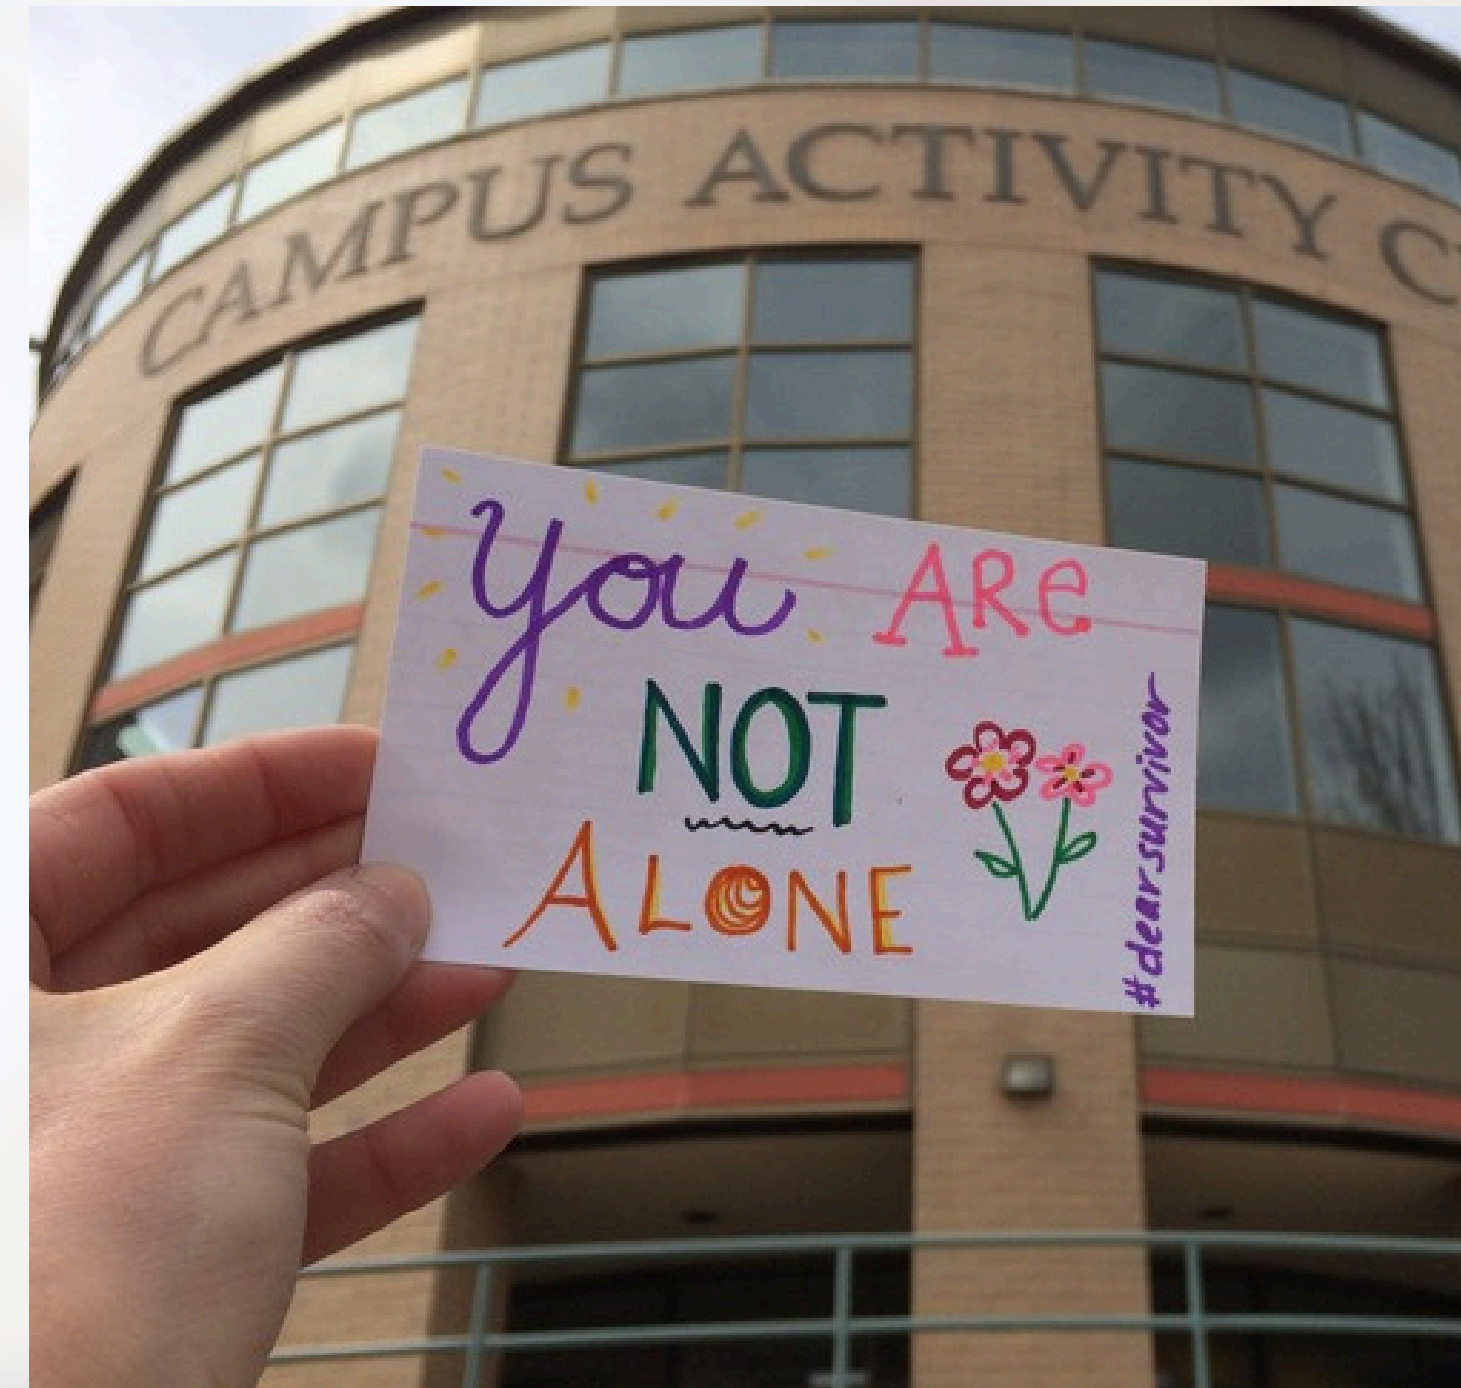 CAMPUS ACTIVITY
you ARe
NOT
ALONE
#dearsurvivor